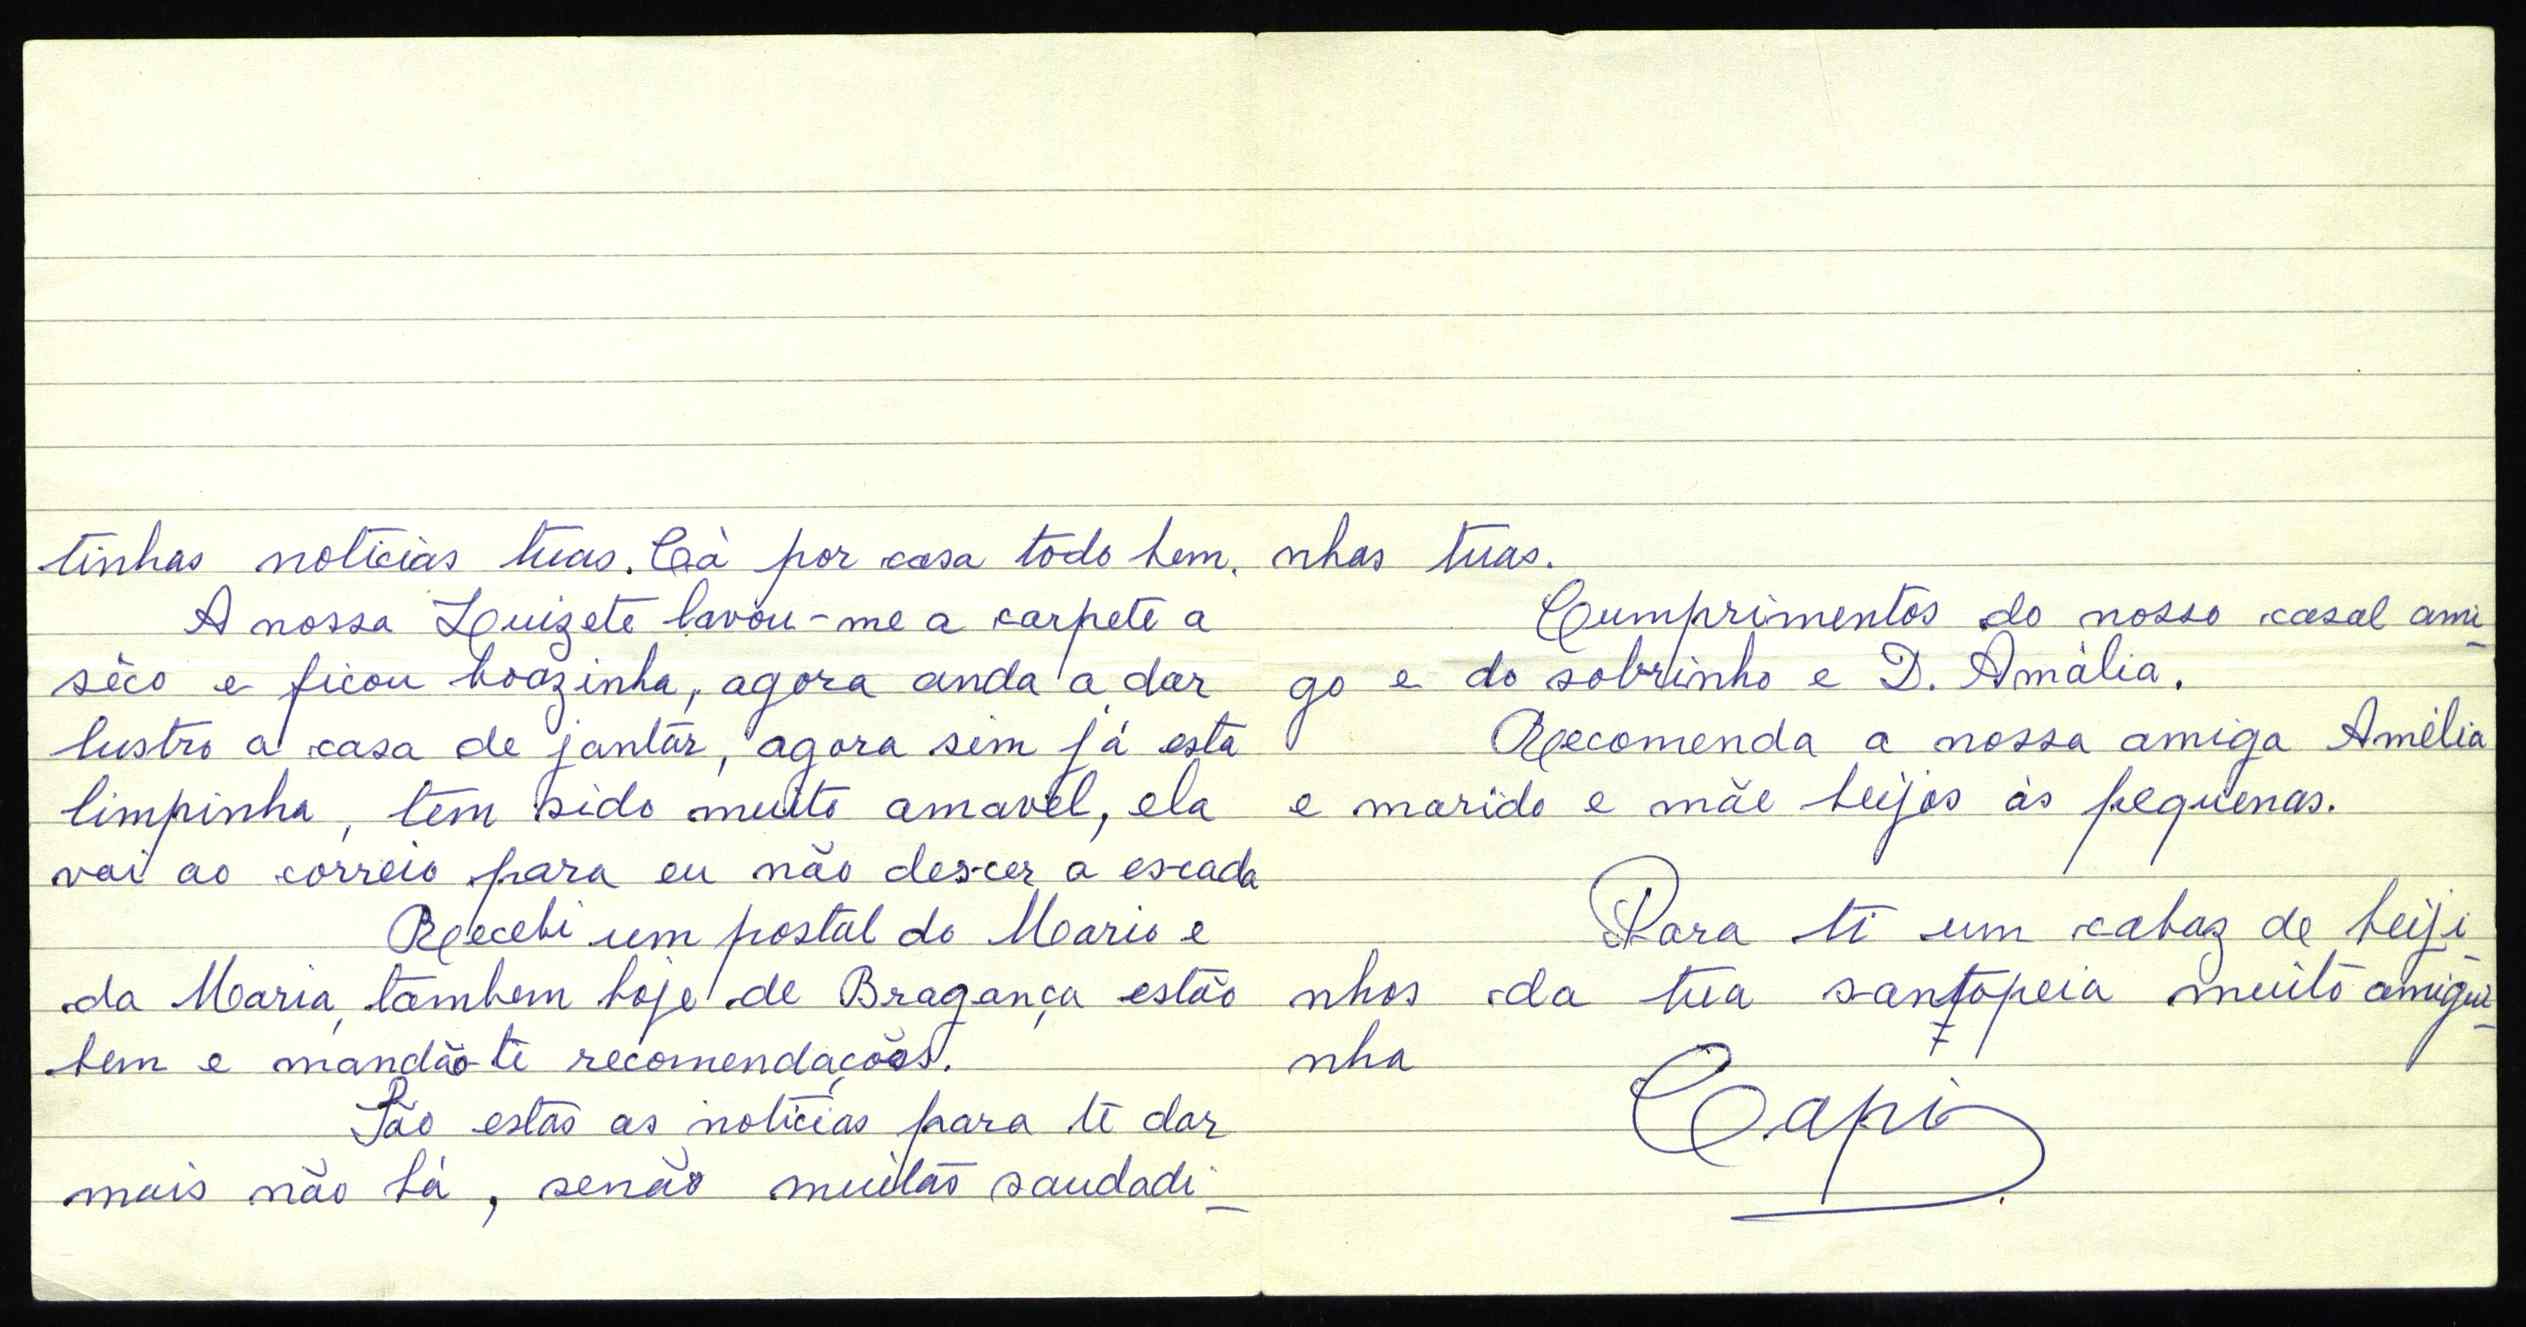 tinhas noticias tuas. Cà por casa todo bem.
A nossa Luizete lavou-me a carpete a
sêco e ficou boazinha, agora anda a dar
lustro a casa de jantar, agora sim já esta
limpinha, tem sido muito amavel, ela
vai ao correio para eu não descer a escada
Recebi um postal do Mario e
da Maria, tambem hoje de Bragança estão
bem e mandão-te recomendações.
São estas as noticias para te dar
mais não há, senão muitas saudadi-
nhas tuas.
Cumprimentos do nosso casal ami-
go e do sobrinho e D. Amàlia.
Recomenda a nossa amiga Amélia
e marido e mãe beijos às pequenas.
Para ti um cabaz de beiji-
nhos da tua santopeia muito amigui-
nha
Capi